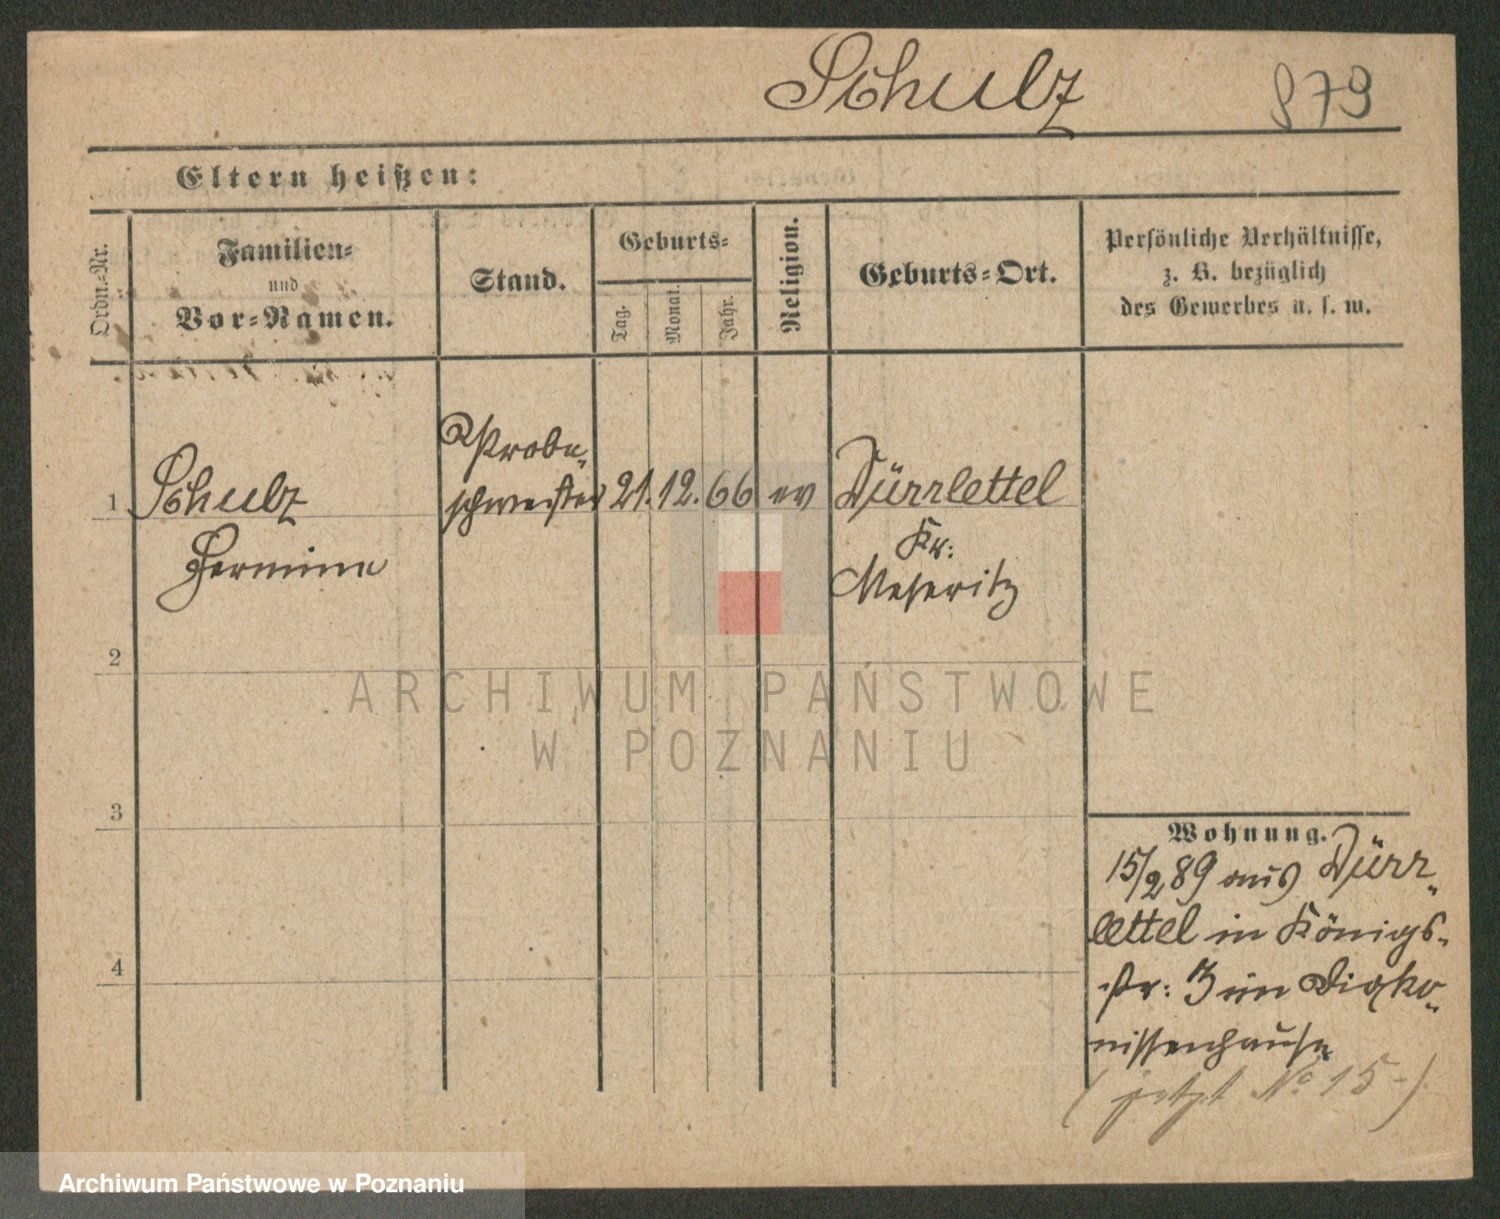 Schulz 879
Eltern heißen:
Ordn.-Nr.
Familien-
und
Vor-Namen.
Stand.
Geburts-
Tag.
Monat.
Jahr.
Religion.
Geburts-Ort.
Persönliche Verhältnisse,
z. B. bezüglich
des Gewerbes u. s. w.
1 Schulz
Hermine
Probe-
schwester
21. 12. 66 ev
Dürrlettel
Kr:
Meseritz
2
3
4
Wohnung.
15/2 89 aus Dürr-
lettel in Königs-
str: 3 im Diako-
nissenhause
(jetzt No 15-)
ARCHIWUM PAŃSTWOWE
W POZNANIU
Archiwum Państwowe w Poznaniu